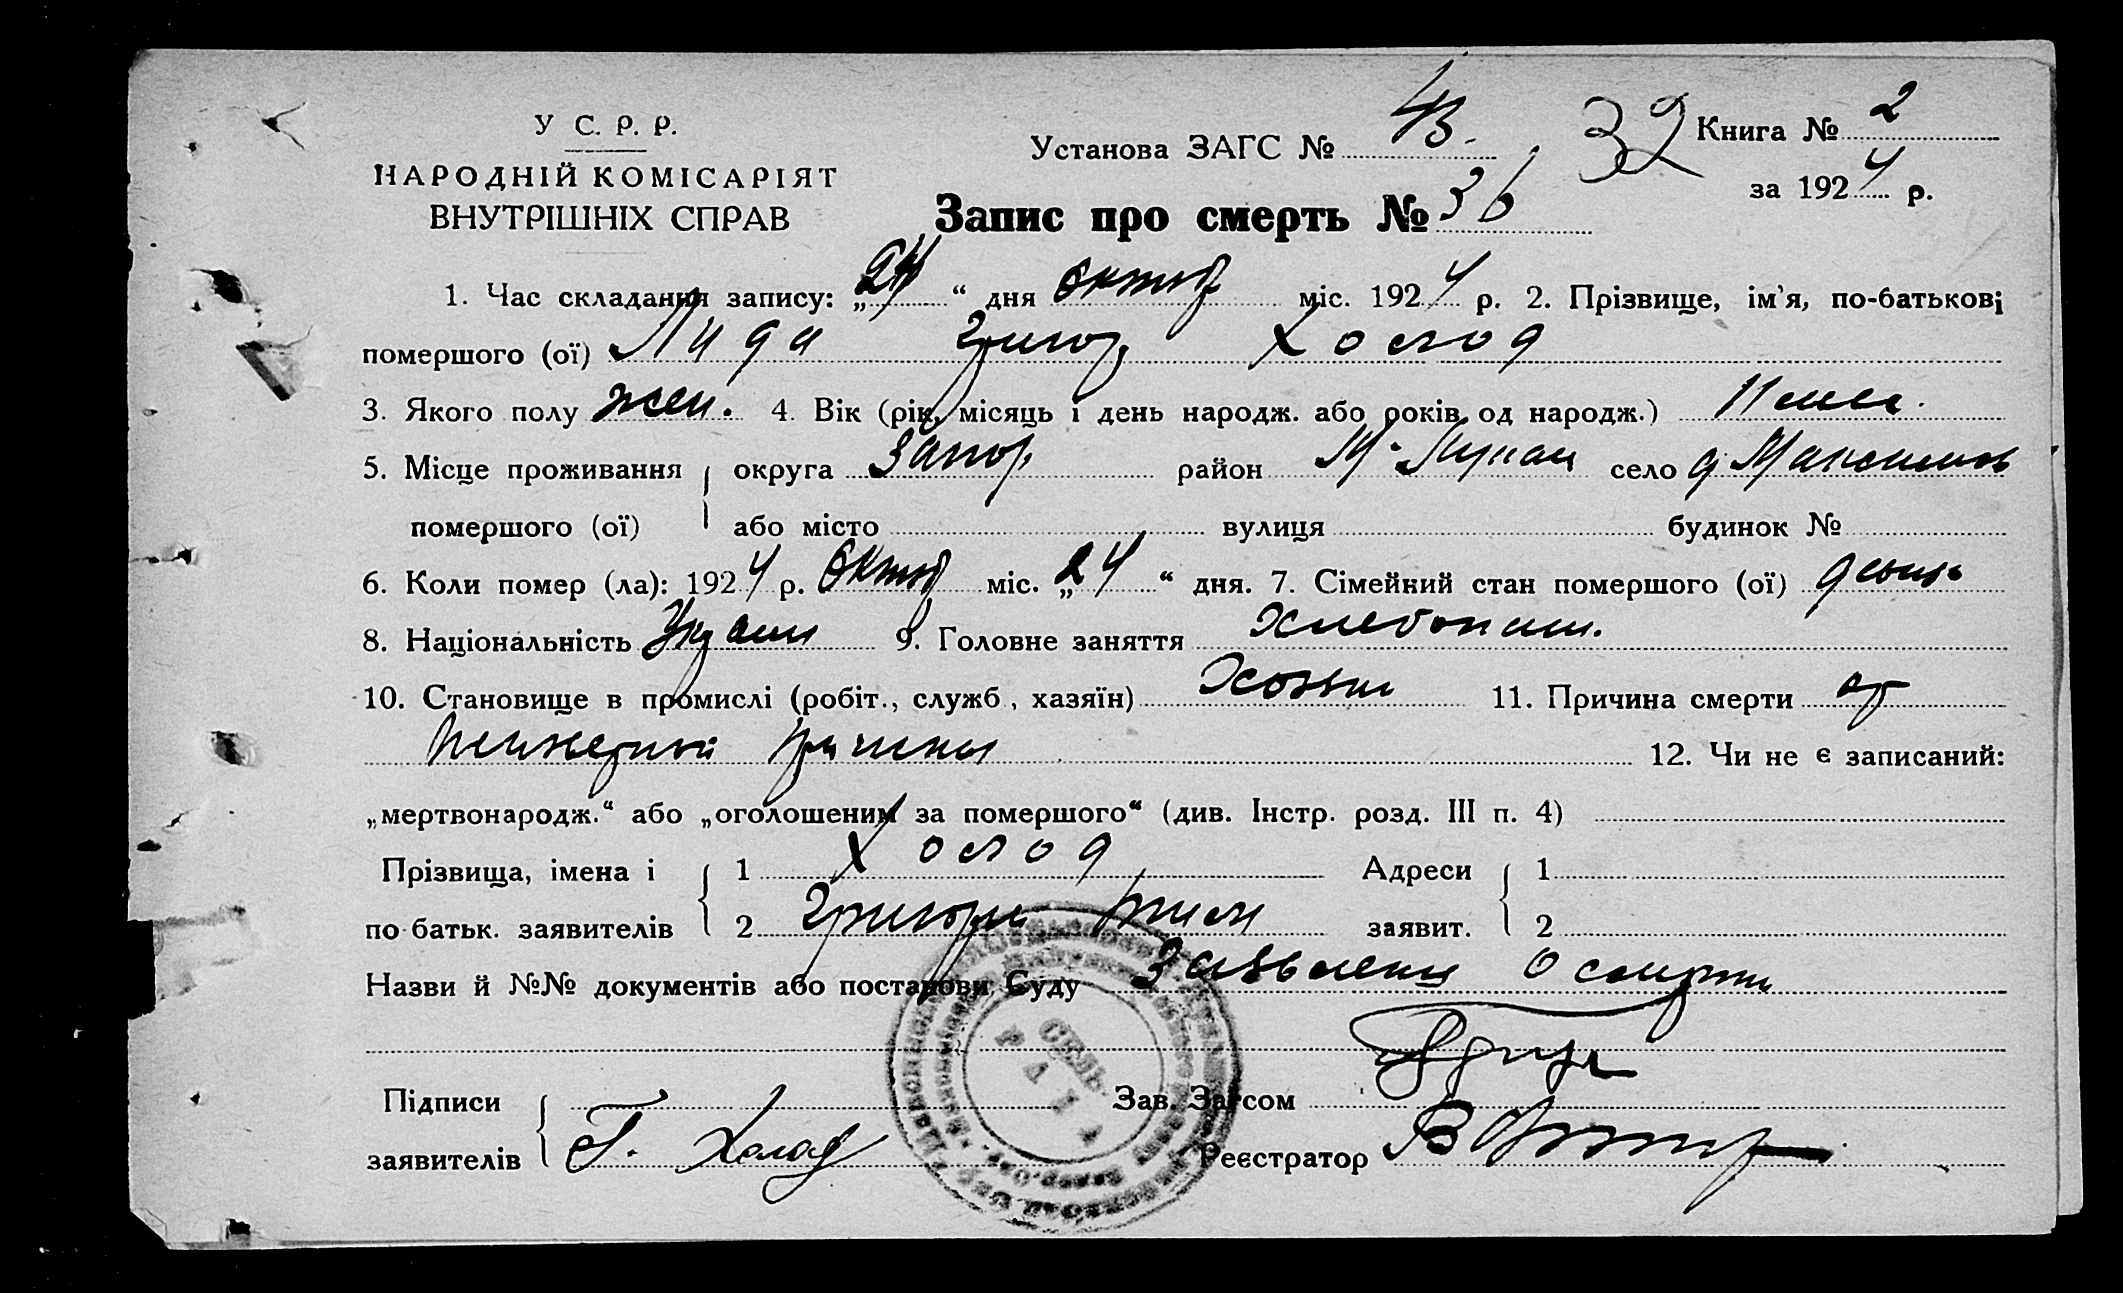 У С. Р. Р.
НАРОДНІЙ КОМІСАРІЯТ
ВНУТРІШНІХ СПРАВ
Установа ЗАГС № 43. 32 Книга № 2
за 1924 р.
Запис про смерть № 36
1. Час складання запису: „24“ дня Октяб міс. 1924 р. 2. Прізвище, ім'я, по-батькові
помершого (ої) Лида Григор. Холод
3. Якого полу жен. 4. Вік (рік, місяць і день народж. або років од народж.) 11 мес.
5. Місце проживання округа Запор. район село д Максимов
помершого (ої) або місто вулиця будинок №
6. Коли помер (ла): 1924 р. Октяб міс. „24“ дня. 7. Сімейний стан помершого (ої)
8. Національність Украин 9. Головне заняття Хлебопаш.
10. Становище в промислі (робіт., служб., хазяїн) Хозяин 11. Причина смерти от
причины 12. Чи не є записаний:
„мертвонародж.“ або „оголошеним за помершого“ (див. Інстр. розд. III п. 4)
Прізвища, імена і 1 Холод Адреси 1
по батьк. заявителів 2 Григори заявит. 2
Назви й №№ документів або постанови Суду Заявление О смерти
Підписи Зав. Загсом
заявителів Г. Холод Реєстратор
СЕЛЬ
РАДА